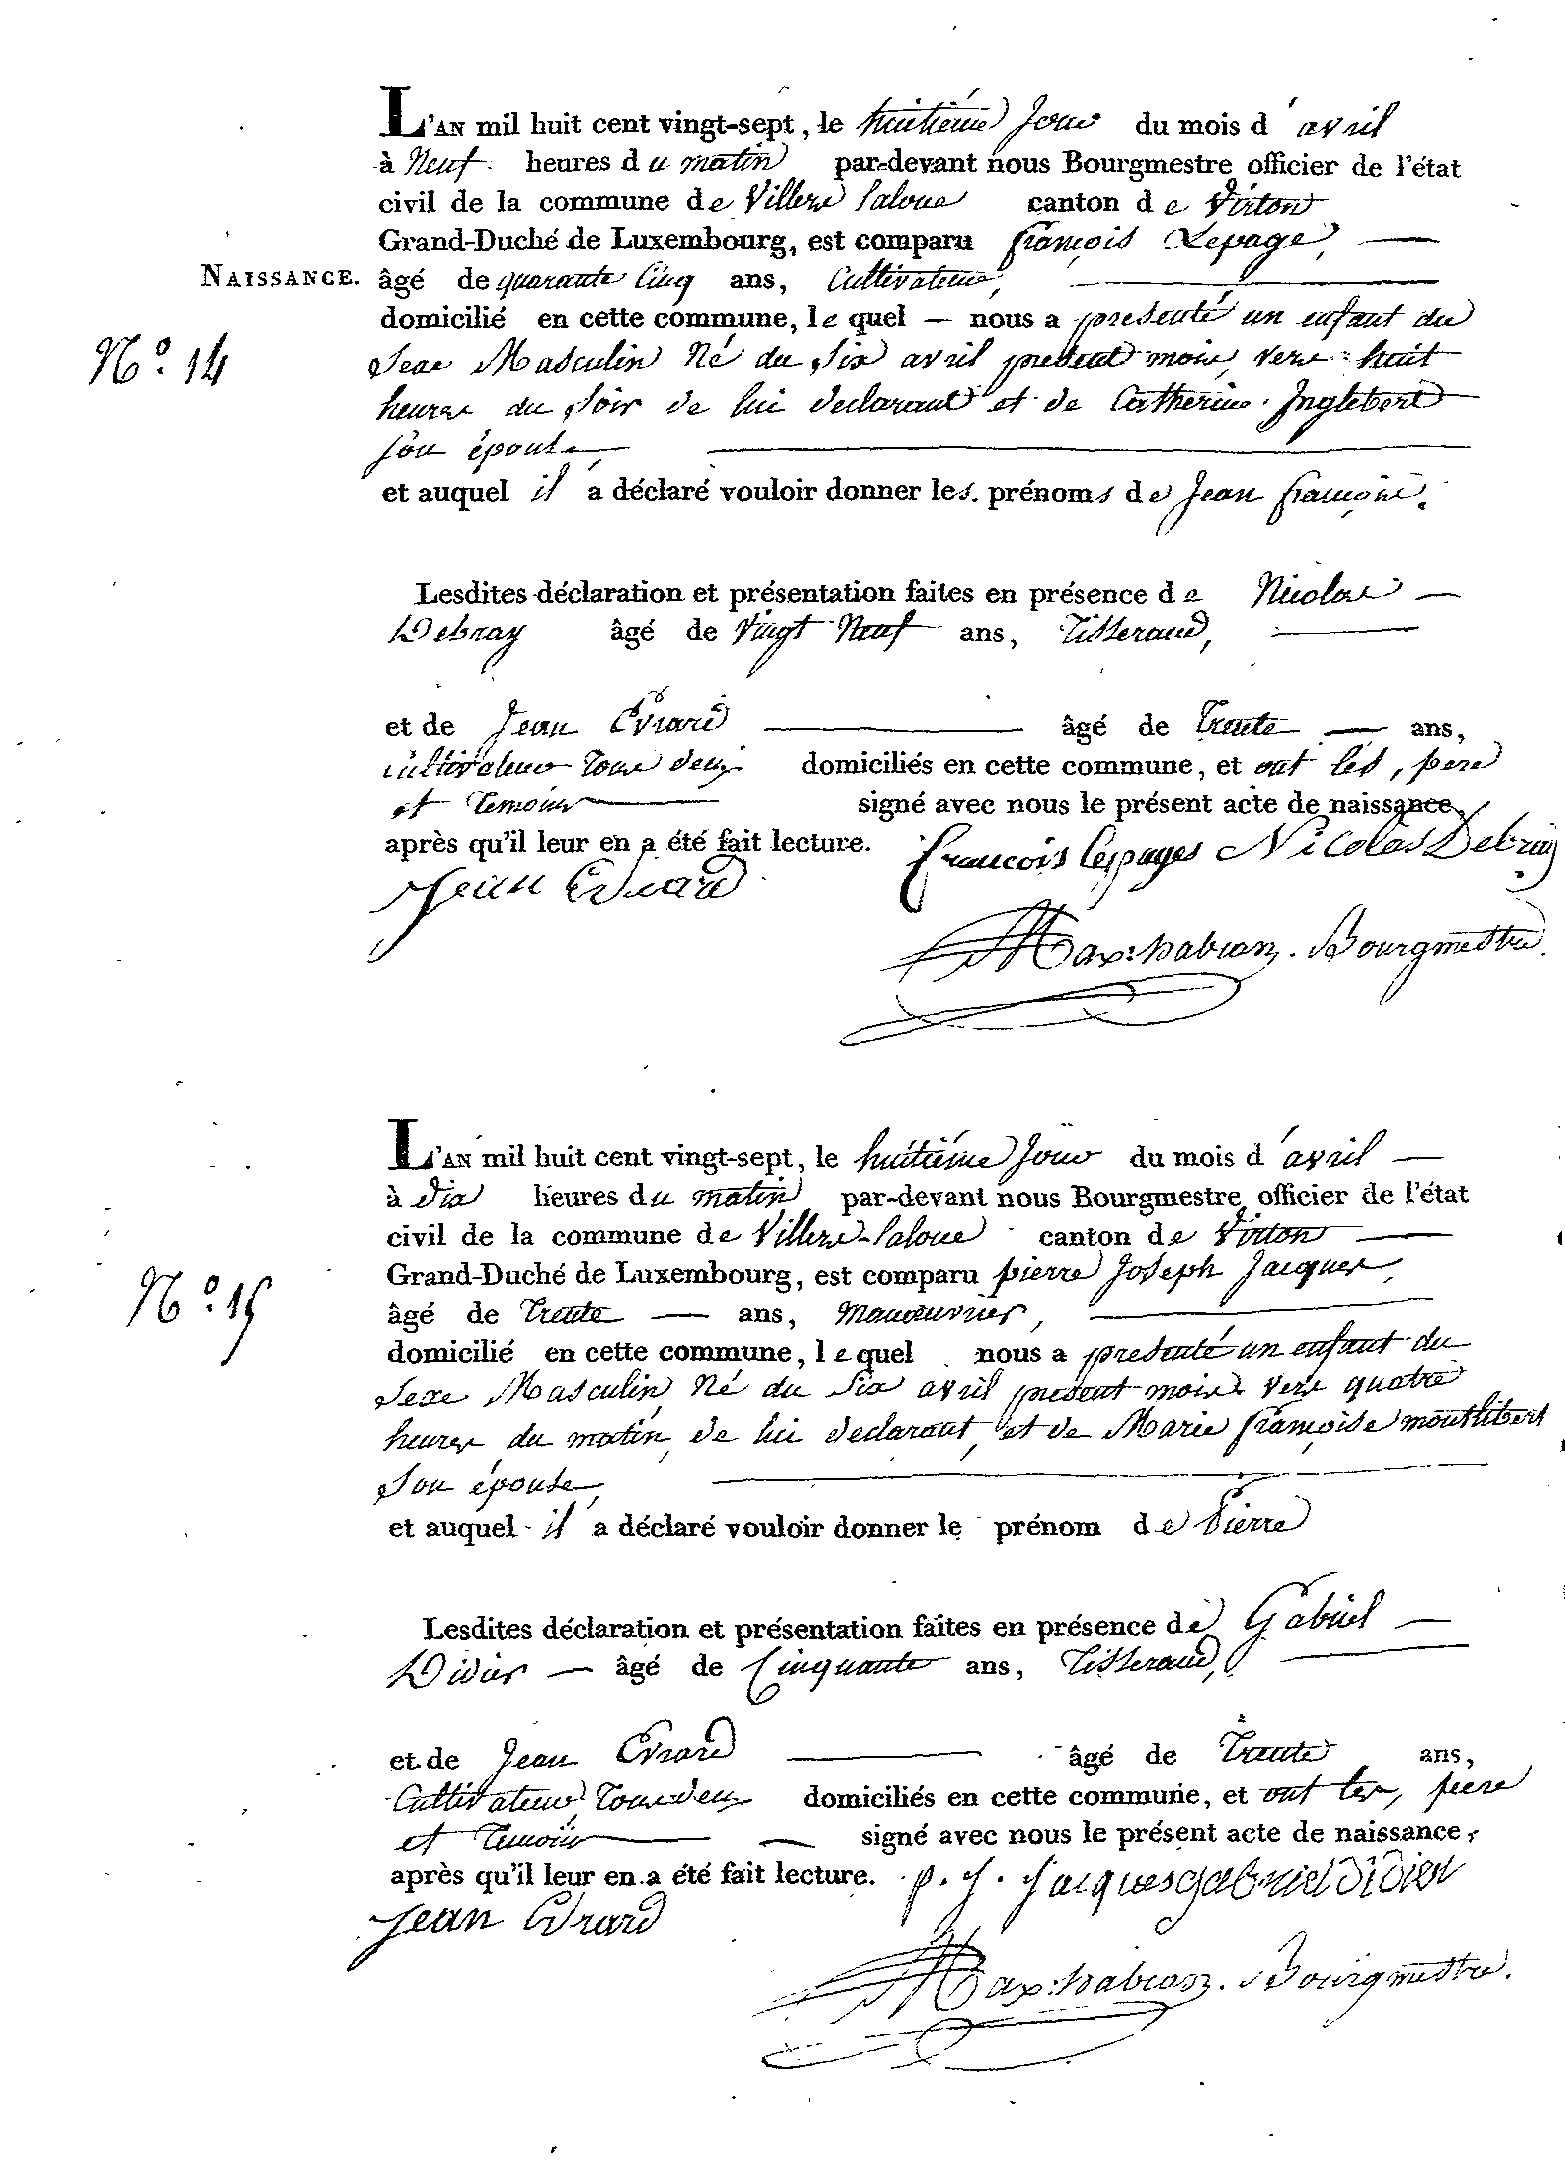 L'AN mil huit cent vingt-sept, le huitiéme Jour du mois d'avril
à Neuf heures du matin par-devant nous Bourgmestre officier de l'état
civil de la commune de Villers laloue canton de Virton
Grand-Duché de Luxembourg, est comparu françois Lepage,
NAISSANCE. âgé de quarante Cinq ans, Cultivateur,
domicilié en cette commune, le quel — nous a presenté un enfant du
N.º 14
Sexe Masculin Né du Six avril present mois vers huit
heures du Soir de lui declarant et de Catherine Inglebert
Son épouse,
et auquel il a déclaré vouloir donner les prénoms de Jean françois.
Lesdites déclaration et présentation faites en présence de Nicolas —
Debray âgé de Vingt Neuf ans, Tisserand,
et de Jean Evrard âgé de Trente — ans,
cultivateur Tous deux domiciliés en cette commune, et ont les, pere
et Temoins signé avec nous le présent acte de naissance,
après qu'il leur en a été fait lecture. francois lespages Nicolas Debray
Jean Evrard
Bourgmestre.
L'AN mil huit cent vingt-sept, le huitiéme Jour du mois d'avril —
à dix heures du matin par-devant nous Bourgmestre officier de l'état
civil de la commune de Villers-laloue canton de Virton —
Grand-Duché de Luxembourg, est comparu pierre Joseph Jacques,
N.º 15
âgé de Trente — ans, Manoeuvrier,
domicilié en cette commune, le quel nous a presenté un enfant du
Sexe Masculin, Né du Six avril present mois vers quatre
heures du matin, de lui declarant, et de Marie françoise montlibert
Son épouse,
et auquel il a déclaré vouloir donner le prénom de Pierre
Lesdites déclaration et présentation faites en présence de Gabriel —
Didier — âgé de Cinquante ans, Tisserand,
et de Jean Evrard âgé de Trente ans,
Cultivateur, Tous deux domiciliés en cette commune, et ont les, pere
et Temoins — signé avec nous le présent acte de naissance,
après qu'il leur en a été fait lecture. p. J. Jacques gabriel Didier
Jean Evrard
Bourgmestre.